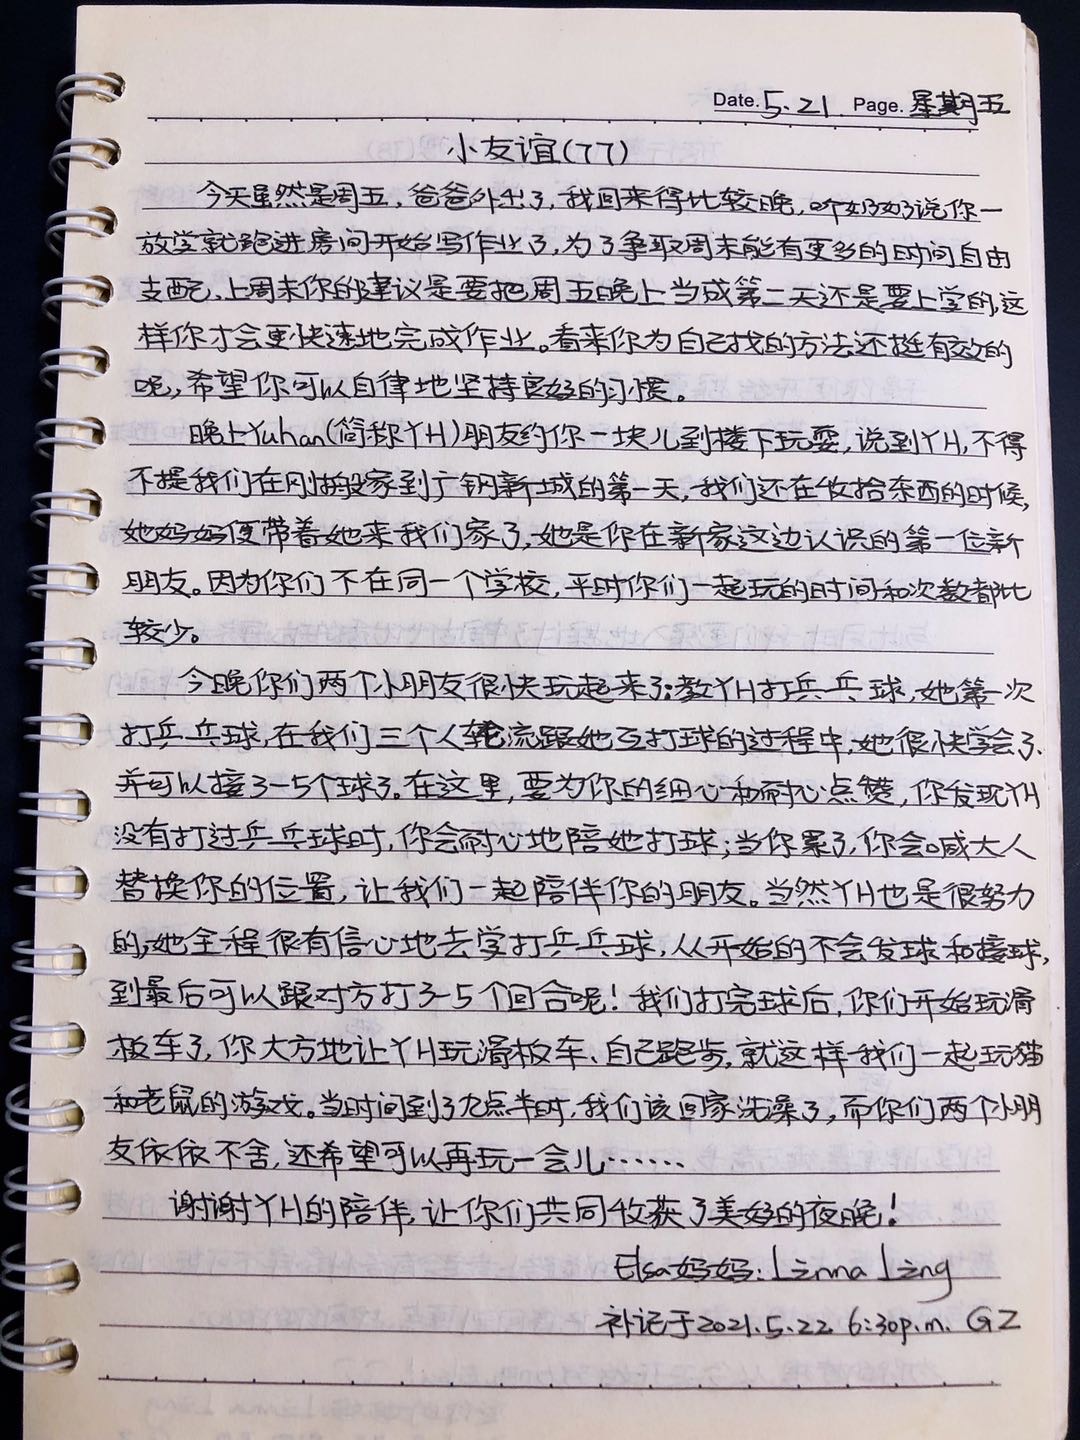 Date. 5.21. Page. 星期五
小友谊(77)
今天虽然是周五,爸爸外出了,我回来得比较晚,听奶奶说你一
放学就跑进房间开始写作业了,为了争取周末能有更多的时间自由
支配,上周末你的建议是要把周五晚上当成第二天还是要上学的,这
样你才会更快速地完成作业。看来你为自己找的方法还挺有效的
呢,希望你可以自律地坚持良好的习惯。
晚上Yuhan(简称YH)朋友约你一块儿到楼下玩耍,说到YH,不得
不提我们在刚搬家到广钢新城的第一天,我们还在收拾东西的时候,
她妈妈便带着她来我们家了,她是你在新家这边认识的第一位新
朋友。因为你们不在同一个学校,平时你们一起玩的时间和次数都比
较少。
今晚你们两个小朋友很快玩起来了:教YH打乒乓球,她第一次
打乒乓球,在我们三个人轮流跟她互打球的过程中,她很快学会了、
并可以接3-5个球了。在这里,要为你的细心和耐心点赞,你发现YH
没有打过乒乓球时,你会耐心地陪她打球;当你累了,你会喊大人
替换你的位置,让我们一起陪伴你的朋友。当然YH也是很努力
的,她全程很有信心地去学打乒乓球,从开始的不会发球和接球,
到最后可以跟对方打3-5个回合呢!我们打完球后,你们开始玩滑
板车了,你大方地让YH玩滑板车、自己跑步,就这样我们一起玩猫
和老鼠的游戏。当时间到了九点半时,我们该回家洗澡了,而你们两个小朋
友依依不舍,还希望可以再玩一会儿……
谢谢YH的陪伴,让你们共同收获了美好的夜晚!
Elsa妈妈:Linna Ling
补记于2021.5.22 6:30p.m. GZ